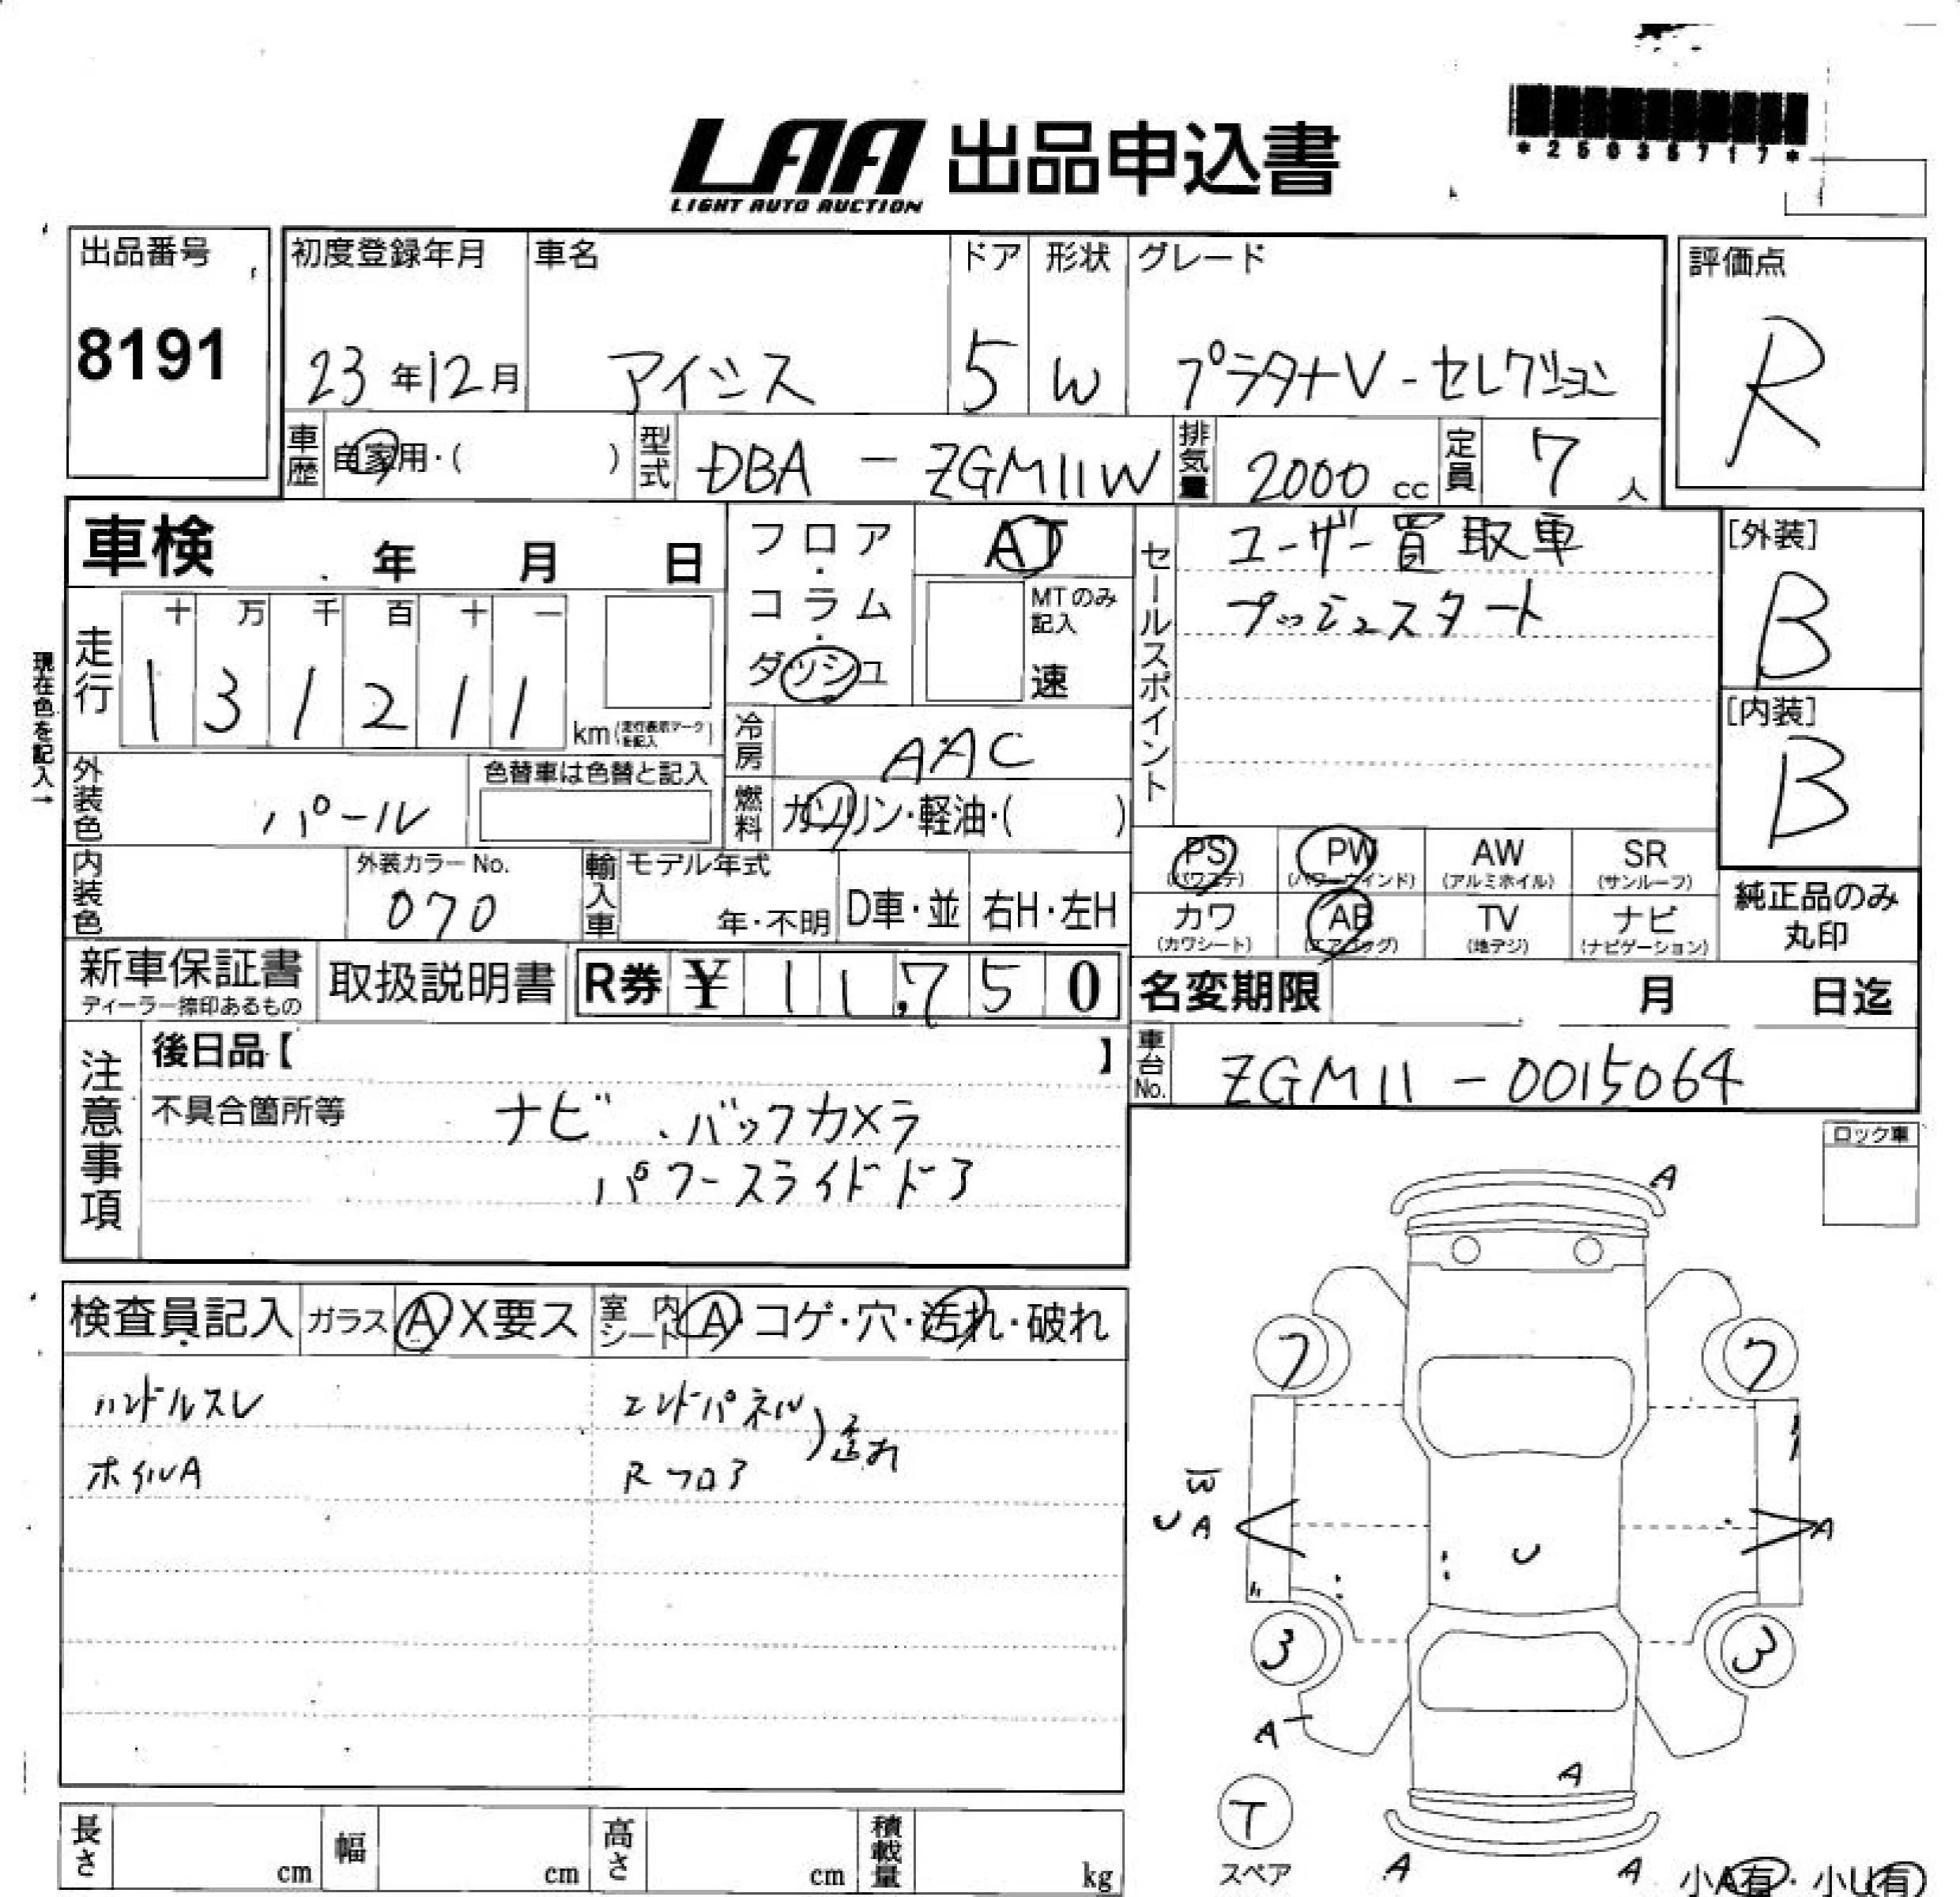 LAA 出品申込書
LIGHT AUTO AUCTION
*25035717*
出品番号
8191
初度登録年月
23年12月
車名
アイシス
ドア
5
形状
W
グレード
プラタナV-セレクション
評価点
R
車歴 自家用・( )
型式 DBA - ZGM11W
排気量 2000 cc
定員 7 人
車検 年 月 日
フロア・コラム・ダッシュ
AT
MTのみ記入
速
セールスポイント
ユーザー買取車
プッシュスタート
[外装]
B
[内装]
B
現在色を記入→
走行
十 万 千 百 十 一
1 3 1 2 1 1
km (走行表示マークを記入)
冷房 AAC
燃料 ガソリン・軽油・( )
外装色 パール
色替車は色替と記入
内装色
外装カラーNo.
070
輸入車
モデル年式
年・不明
D車・並
右H・左H
PS (パワステ)
PW (パワーウィンド)
AW (アルミホイル)
SR (サンルーフ)
カワ (カワシート)
AB (エアバッグ)
TV (地デジ)
ナビ (ナビゲーション)
純正品のみ丸印
新車保証書
ディーラー捺印あるもの
取扱説明書
R券 ¥ 11,750
名変期限 月 日迄
車台No. ZGM11-0015064
注意事項
後日品【 】
不具合箇所等
ナビ、バックカメラ
パワースライドドア
ロック車
検査員記入
ガラス A X要ス
室内シート A・コゲ・穴・汚れ・破れ
ハンドルスレ
ホイルA
エンドパネル
Rフロア
歪れ
A
7
7
W
U A
A
U
3
3
A
A
T
スペア
A
A
小A有・小U有
長さ cm
幅 cm
高さ cm
積載量 kg